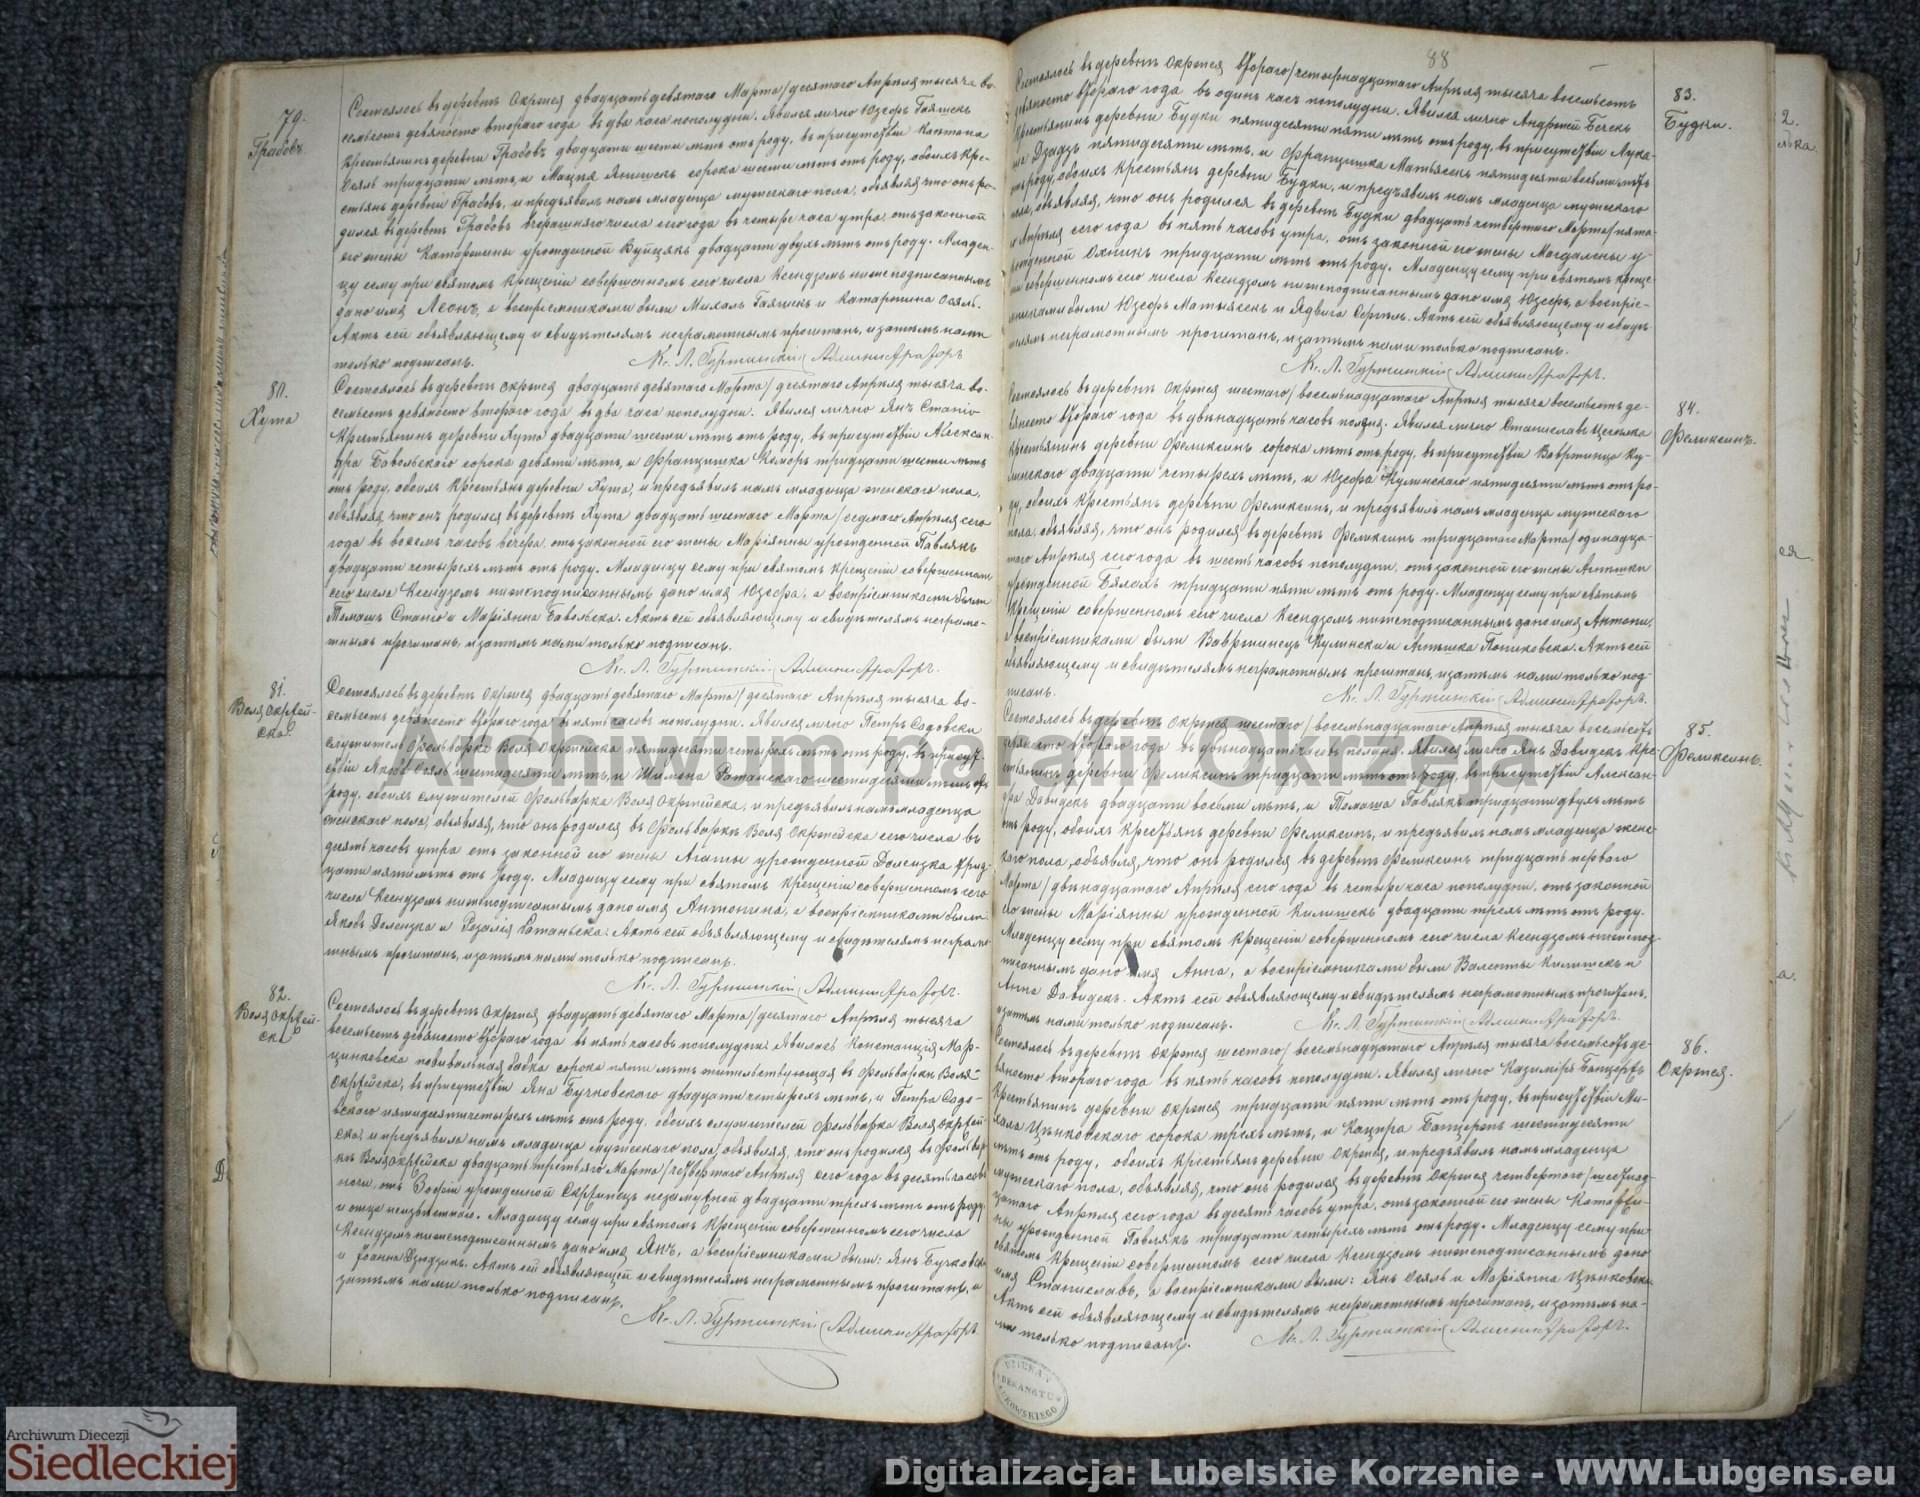 79.
Грабовъ.
Состоялось въ деревнѣ Окржея двадцать девятаго Марта/десятаго Апрѣля тысяча во-
семьсотъ девяносто втораго года въ два часа пополудни. Явился лично Юзефъ Гаишекъ
крестьянинъ деревни Грабовъ двадцати шести лѣтъ отъ роду, въ присутствіи Каетана
Осялъ тридцати лѣтъ, и Мацѣя Янишекъ сорока шести лѣтъ отъ роду, обоихъ кре-
стьянъ деревни Грабовъ, и предъявилъ намъ младенца мужескаго пола, объявляя что онъ ро-
дился въ деревнѣ Грабовъ вчерашняго числа сего года въ четыре часа утра, отъ законной
его жены Катаржины урожденной Вуйцякъ двадцати двухъ лѣтъ отъ роду. Младен-
цу сему при святомъ крещеніи совершонномъ сего числа Ксендзомъ нижеподписаннымъ
дано имя Леонъ, а воспріемниками были Михалъ Гаишекъ и Катаржина Осялъ.
Актъ сей объявляющему и свидѣтелямъ неграмотнымъ прочитанъ, и затѣмъ нами
только подписанъ.
Кс. Л. Администраторъ
80.
Хута
Состоялось въ деревнѣ Окржея двадцать девятаго Марта/десятаго Апрѣля тысяча во-
семьсотъ девяносто втораго года въ два часа пополудни. Явился лично Янъ Станіо
крестьянинъ деревни Хута двадцати шести лѣтъ отъ роду, въ присутствіи Алексан-
дра Бавольскаго сорока девяти лѣтъ, и Францишка Коморъ тридцати шести лѣтъ
отъ роду, обоихъ крестьянъ деревни Хута, и предъявилъ намъ младенца женскаго пола,
объявляя что онъ родился въ деревнѣ Хута двадцать шестаго Марта/седмаго Апрѣля сего
года въ восемь часовъ вечера, отъ законной его жены Маріянны урожденной Павлякъ
двадцати четырехъ лѣтъ отъ роду. Младенцу сему при святомъ крещеніи совершонномъ
сего числа Ксендзомъ нижеподписаннымъ дано имя Юзефа, а воспріемниками были
Томашъ Станіо и Маріянна Бавольска. Актъ сей объявляющему и свидѣтелямъ неграмо-
тнымъ прочитанъ, и затѣмъ нами только подписанъ.
Кс. Л. Администраторъ.
81.
Воля Окржей-
ска.
Состоялось въ деревнѣ Окржея двадцать девятаго Марта/десятаго Апрѣля тысяча во-
семьсотъ девяносто втораго года въ пять часовъ пополудни. Явился лично Петръ Садовски
служитель фольварка Воля Окржейска пятидесяти четырехъ лѣтъ отъ роду, въ присут-
ствіи Якова Осялъ шестидесяти лѣтъ, и Шимона Ратанскаго шестидесяти лѣтъ отъ
роду, обоихъ служителей фольварка Воля Окржейска, и предъявилъ намъ младенца
женскаго пола, объявляя, что онъ родился въ фольваркѣ Воля Окржейска сего числа въ
десять часовъ утра отъ законной его жены Агаты урожденной Долецка тридц-
цати пяти лѣтъ отъ роду. Младенцу сему при святомъ крещеніи совершонномъ сего
числа Ксендзомъ нижеподписаннымъ дано имя Антонина, а воспріемниками были
Яковъ Долецка и Розалія Ратаньска. Актъ сей объявляющему и свидѣтелямъ неграмо-
тнымъ прочитанъ, и затѣмъ нами только подписанъ.
Кс. Л. Администраторъ.
82.
Воля Окржей-
ска
Состоялось въ деревнѣ Окржея двадцать девятаго Марта/десятаго Апрѣля тысяча
восемьсотъ девяносто втораго года въ пять часовъ пополудни. Явилась Констанція Мар-
цинковска повивальная бабка сорока пяти лѣтъ жительствующая въ фольваркѣ Воля-
Окржейска, въ присутствіи Яна Бучковскаго двадцати четырехъ лѣтъ, и Петра Садо-
вскаго пятидесяти четырехъ лѣтъ отъ роду, обоихъ служителей фольварка Воля Окржей-
ска, и предъявила намъ младенца мужескаго пола, объявляя, что онъ родился въ фольвар-
кѣ Воля Окржейска двадцать третьяго Марта/четвертаго Апрѣля сего года въ десять часовъ
ночи, отъ Зофіи урожденной незамужной двадцати трехъ лѣтъ отъ роду
и отца неизвѣстнаго. Младенцу сему при святомъ крещеніи совершонномъ сего числа
Ксендзомъ нижеподписаннымъ дано имя Янъ, а воспріемниками были: Янъ Бучковски
и Іоанна. Актъ сей объявляющей и свидѣтелямъ неграмотнымъ прочитанъ, а
затѣмъ нами только подписанъ.
Кс. Л. Администраторъ
88
83.
Будки.
Состоялось въ деревнѣ Окржея втораго/четырнадцатаго Апрѣля тысяча восемьсотъ
девяносто втораго года въ одинъ часъ пополудни. Явился лично Андржей Бечекъ
крестьянинъ деревни Будки пятидесяти пяти лѣтъ отъ роду, въ присутствіи Лука-
ша Дзядзъ пятидесяти лѣтъ, и Францишка Матысекъ пятидесяти восьми лѣтъ
отъ роду, обоихъ крестьянъ деревни Будки, и предъявилъ намъ младенца мужескаго
пола, объявляя, что онъ родился въ деревнѣ Будки двадцать четвертаго Марта/пята-
го Апрѣля сего года въ пять часовъ утра, отъ законной его жены Магдалены у-
рожденной Охникъ тридцати лѣтъ отъ роду. Младенцу сему при святомъ креще-
ніи совершонномъ сего числа Ксендзомъ нижеподписаннымъ дано имя Юзефъ, а воспріе-
мниками были Юзефъ Матысекъ и Ядвига. Актъ сей объявляющему и свидѣ-
телямъ неграмотнымъ прочитанъ, и затѣмъ нами только подписанъ.
Кс. Л. Администраторъ.
84.
Феликсинъ.
Состоялось въ деревнѣ Окржея шестаго/восемьнадцатаго Апрѣля тысяча восемьсотъ де-
вяносто втораго года въ двѣнадцать часовъ полдня. Явился лично Станиславъ Цеголка
крестьянинъ деревни Феликсинъ сорока лѣтъ отъ роду, въ присутствіи Вавржинца Ку-
линскаго двадцати четырехъ лѣтъ, и Юзефа Кулинскаго пятидесяти лѣтъ отъ ро-
ду, обоихъ крестьянъ деревни Феликсинъ, и предъявилъ намъ младенца мужескаго
пола, объявляя, что онъ родился въ деревнѣ Феликсинъ тридцатаго Марта/одинадца-
таго Апрѣля сего года въ шесть часовъ пополудни, отъ законной его жены Агнѣшки
урожденной Бялахъ тридцати пяти лѣтъ отъ роду. Младенцу сему при святомъ
крещеніи совершонномъ сего числа Ксендзомъ нижеподписаннымъ дано имя Антони,
а воспріемниками были Вавржинецъ Кулински и Агнѣшка Пониковска. Актъ сей
объявляющему и свидѣтелямъ неграмотнымъ прочитанъ, и затѣмъ нами только под-
писанъ.
Кс. Л. Администраторъ.
85.
Феликсинъ.
Состоялось въ деревнѣ Окржея шестаго/восемьнадцатаго Апрѣля тысяча восемьсотъ
девяносто втораго года въ двѣнадцать часовъ полдня. Явился лично Янъ Давидекъ кре-
стьянинъ деревни Феликсинъ тридцати лѣтъ отъ роду, въ присутствіи Алексан-
дра Давидекъ двадцати восьми лѣтъ, и Томаша Павлякъ тридцати двухъ лѣтъ
отъ роду, обоихъ крестьянъ деревни Феликсинъ, и предъявилъ намъ младенца женс-
каго пола, объявляя, что онъ родился въ деревнѣ Феликсинъ тридцать перваго
Марта/двѣнадцатаго Апрѣля сего года въ четыре часа пополудни, отъ законной
его жены Маріянны урожденной Килишекъ двадцати трехъ лѣтъ отъ роду.
Младенцу сему при святомъ крещеніи совершонномъ сего числа Ксендзомъ нижепод-
писаннымъ дано имя Анна, а воспріемниками были Валенты Килишекъ и
Анна Давидекъ. Актъ сей объявляющему и свидѣтелямъ неграмотнымъ прочитанъ,
а затѣмъ нами только подписанъ.
Кс. Л. Администраторъ.
86.
Окржея.
Состоялось въ деревнѣ Окржея шестаго/восемьнадцатаго Апрѣля тысяча восемьсотъ де-
вяносто втораго года въ пять часовъ пополудни. Явился лично Казиміръ Банцержъ
крестьянинъ деревни Окржея тридцати пяти лѣтъ отъ роду, въ присутствіи Ми-
хала Цѣнковскаго сорока трехъ лѣтъ, и Кацпра Банцержъ шестидесяти
лѣтъ отъ роду, обоихъ крестьянъ деревни Окржея, и предъявилъ намъ младенца
мужескаго пола, объявляя, что онъ родился въ деревнѣ Окржея четвертаго/шестнад-
цатаго Апрѣля сего года въ десять часовъ утра, отъ законной его жены Катаржи-
ны урожденной Павлякъ тридцати четырехъ лѣтъ отъ роду. Младенцу сему при
святомъ крещеніи совершонномъ сего числа Ксендзомъ нижеподписаннымъ дано
имя Станиславъ, а воспріемниками были: Янъ Осялъ и Маріянна Цѣнковска.
Актъ сей объявляющему и свидѣтелямъ неграмотнымъ прочитанъ, и затѣмъ на-
ми только подписанъ.
Кс. Л. Администраторъ.
DZIEKAN
DEKANATU
ŁUKOWSKIEGO
Archiwum parafii Okrzeja
Archiwum Diecezji
Siedleckiej
Digitalizacja: Lubelskie Korzenie - WWW.Lubgens.eu